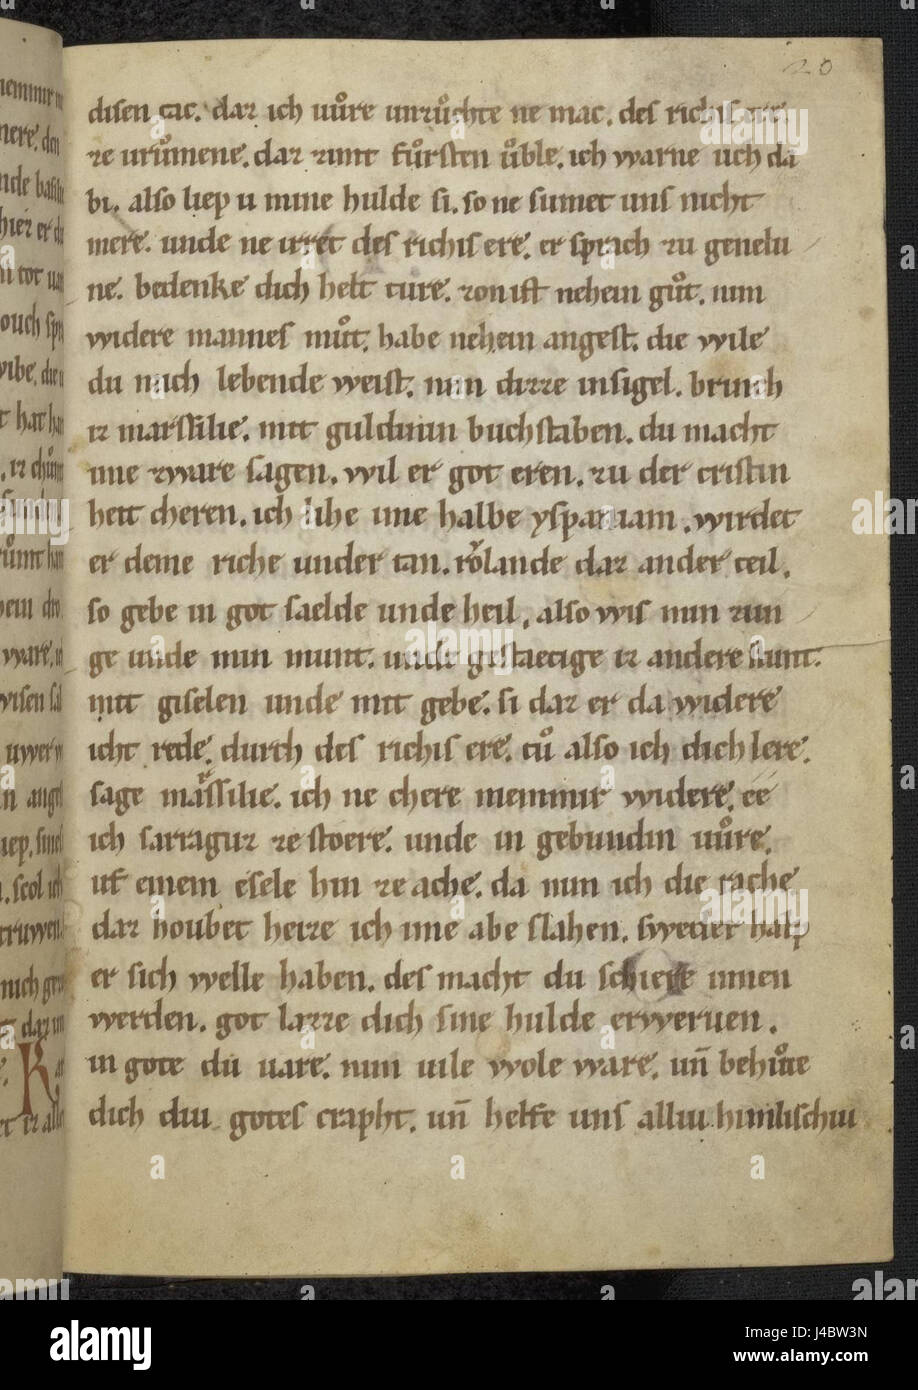 20
disen tac. daz ich uůre unrůchte ne mac. des richis ere.
ze urůmene. daz zimt fůrsten ůble. ich warne uch da
bi. also liep u mine hulde si. so ne sumet uns nicht
mere. unde ne irret des richis ere. er sprach zu genelu
ne. bedenke dich helt ture. zorn ist nehein gůt. nim
widere mannes můt. habe nehein angest. die wile
du mich lebende weist. nim dizze insigel. brinch
iz marssilie. mit guldinin buchstaben. du macht
ime zware sagen. wil er got eren. zu der cristin
heit cheren. ich lihe ime halbe yspaniam. wirdet
er deme riche under tan. rolande daz ander teil.
so gebe in got saelde unde heil. also wis min zun
ge unde min munt. unde gestaetige iz andere stunt.
mit giselen unde mit gebe. si daz er da widere
icht rede. durch des richis ere. tů also ich dich lere.
sage marssilie. ich ne chere niemmir widere. ee
ich sarraguz zestoere. unde in gebundin uůre.
uf einem esele hin ze ache. da nim ich die rache
daz houbet heize ich ime abe slahen. sweder halp
er sich welle haben. des macht du schiere innen
werden. got lazze dich sine hulde erwerven.
in gote du uare. nim uile wole ware. uñ behůte
dich diu gotes crapht. uñ helfe uns alliu himilischiu
alamy
J4BW3N
www.alamy.com